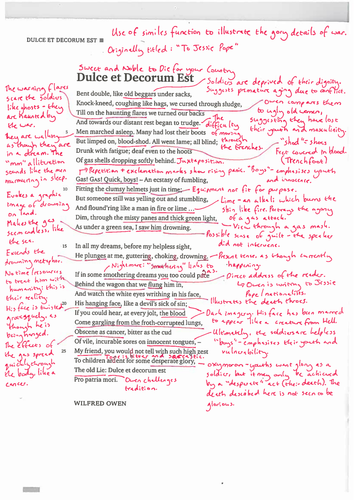 DULCE ET DECORUM EST
Use of similes function to illustrate the gory details of war.
Originally titled: "To Jessie Pope"
Sweet and Noble to Die for your Country
Dulce et Decorum Est
Bent double, like old beggars under sacks,
Knock-kneed, coughing like hags, we cursed through sludge,
Till on the haunting flares we turned our backs
And towards our distant rest began to trudge.
5 Men marched asleep. Many had lost their boots
But limped on, blood-shod. All went lame; all blind;
Drunk with fatigue; deaf even to the hoots
Of gas shells dropping softly behind.
Juxtaposition.
Repetition + exclamation marks show rising panic. "Boys" - emphasises youth and innocence.
Gas! Gas! Quick, boys! – An ecstasy of fumbling,
10 Fitting the clumsy helmets just in time;
But someone still was yelling out and stumbling,
And flound'ring like a man in fire or lime ...
Dim, through the misty panes and thick green light,
As under a green sea, I saw him drowning.
15 In all my dreams, before my helpless sight,
He plunges at me, guttering, choking, drowning.
"smothering" links to gas.
If in some smothering dreams you too could pace
Behind the wagon that we flung him in,
And watch the white eyes writhing in his face,
20 His hanging face, like a devil's sick of sin;
If you could hear, at every jolt, the blood
Come gargling from the froth-corrupted lungs,
Obscene as cancer, bitter as the cud
Of vile, incurable sores on innocent tongues, –
25 My friend, you would not tell with such high zest
To children ardent for some desperate glory,
The old Lie: Dulce et decorum est
Pro patria mori.
Owen challenges tradition.
WILFRED OWEN
The warning flares
scare the soldiers
like ghosts - they
are haunted by
the war.
They are walking
as though they are
in a dream. The
"m" alliteration
sounds like the men
murmuring in sleep.
Evokes a graphic
image of drowning
on land.
Makes the gas
seem endless, like
the sea.
Extends the
drowning metaphor.
No time/resources
to treat him with
humanity; this is
their reality
His face is twisted
grotesquely as
though he is
being hanged.
The effects of
the gas spread
quickly through
the body like a
cancer.
Soldiers are deprived of their dignity.
Suggests premature aging due to conflict.
Owen compares them
to ugly old women,
suggesting they have lost
their youth and masculinity.
The difficulty
of moving
through
the trenches.
"shod" - shoes
Feet covered in blood.
(Trenchfoot)
Equipment not fit for purpose.
Lime - an alkali which burns the
skin like fire. Portrays the agony
of a gas attack.
View through a gas mask.
Possible sense of guilt - the speaker
did not intervene.
Present tense, as though currently
happening
Direct address of the reader.
Owen is writing to Jessie
Pope / nationalists.
Illustrates the death throes.
Dark imagery: His face has been marred
to appear like a creature from Hell.
Ultimately, the soldiers are helpless
"boys" - emphasises their youth and
vulnerability
oxymoron - youths want glory as a
soldier, but it may only be achieved
by a "desperate" act (their death). The
death described here is not seen to be
glorious.